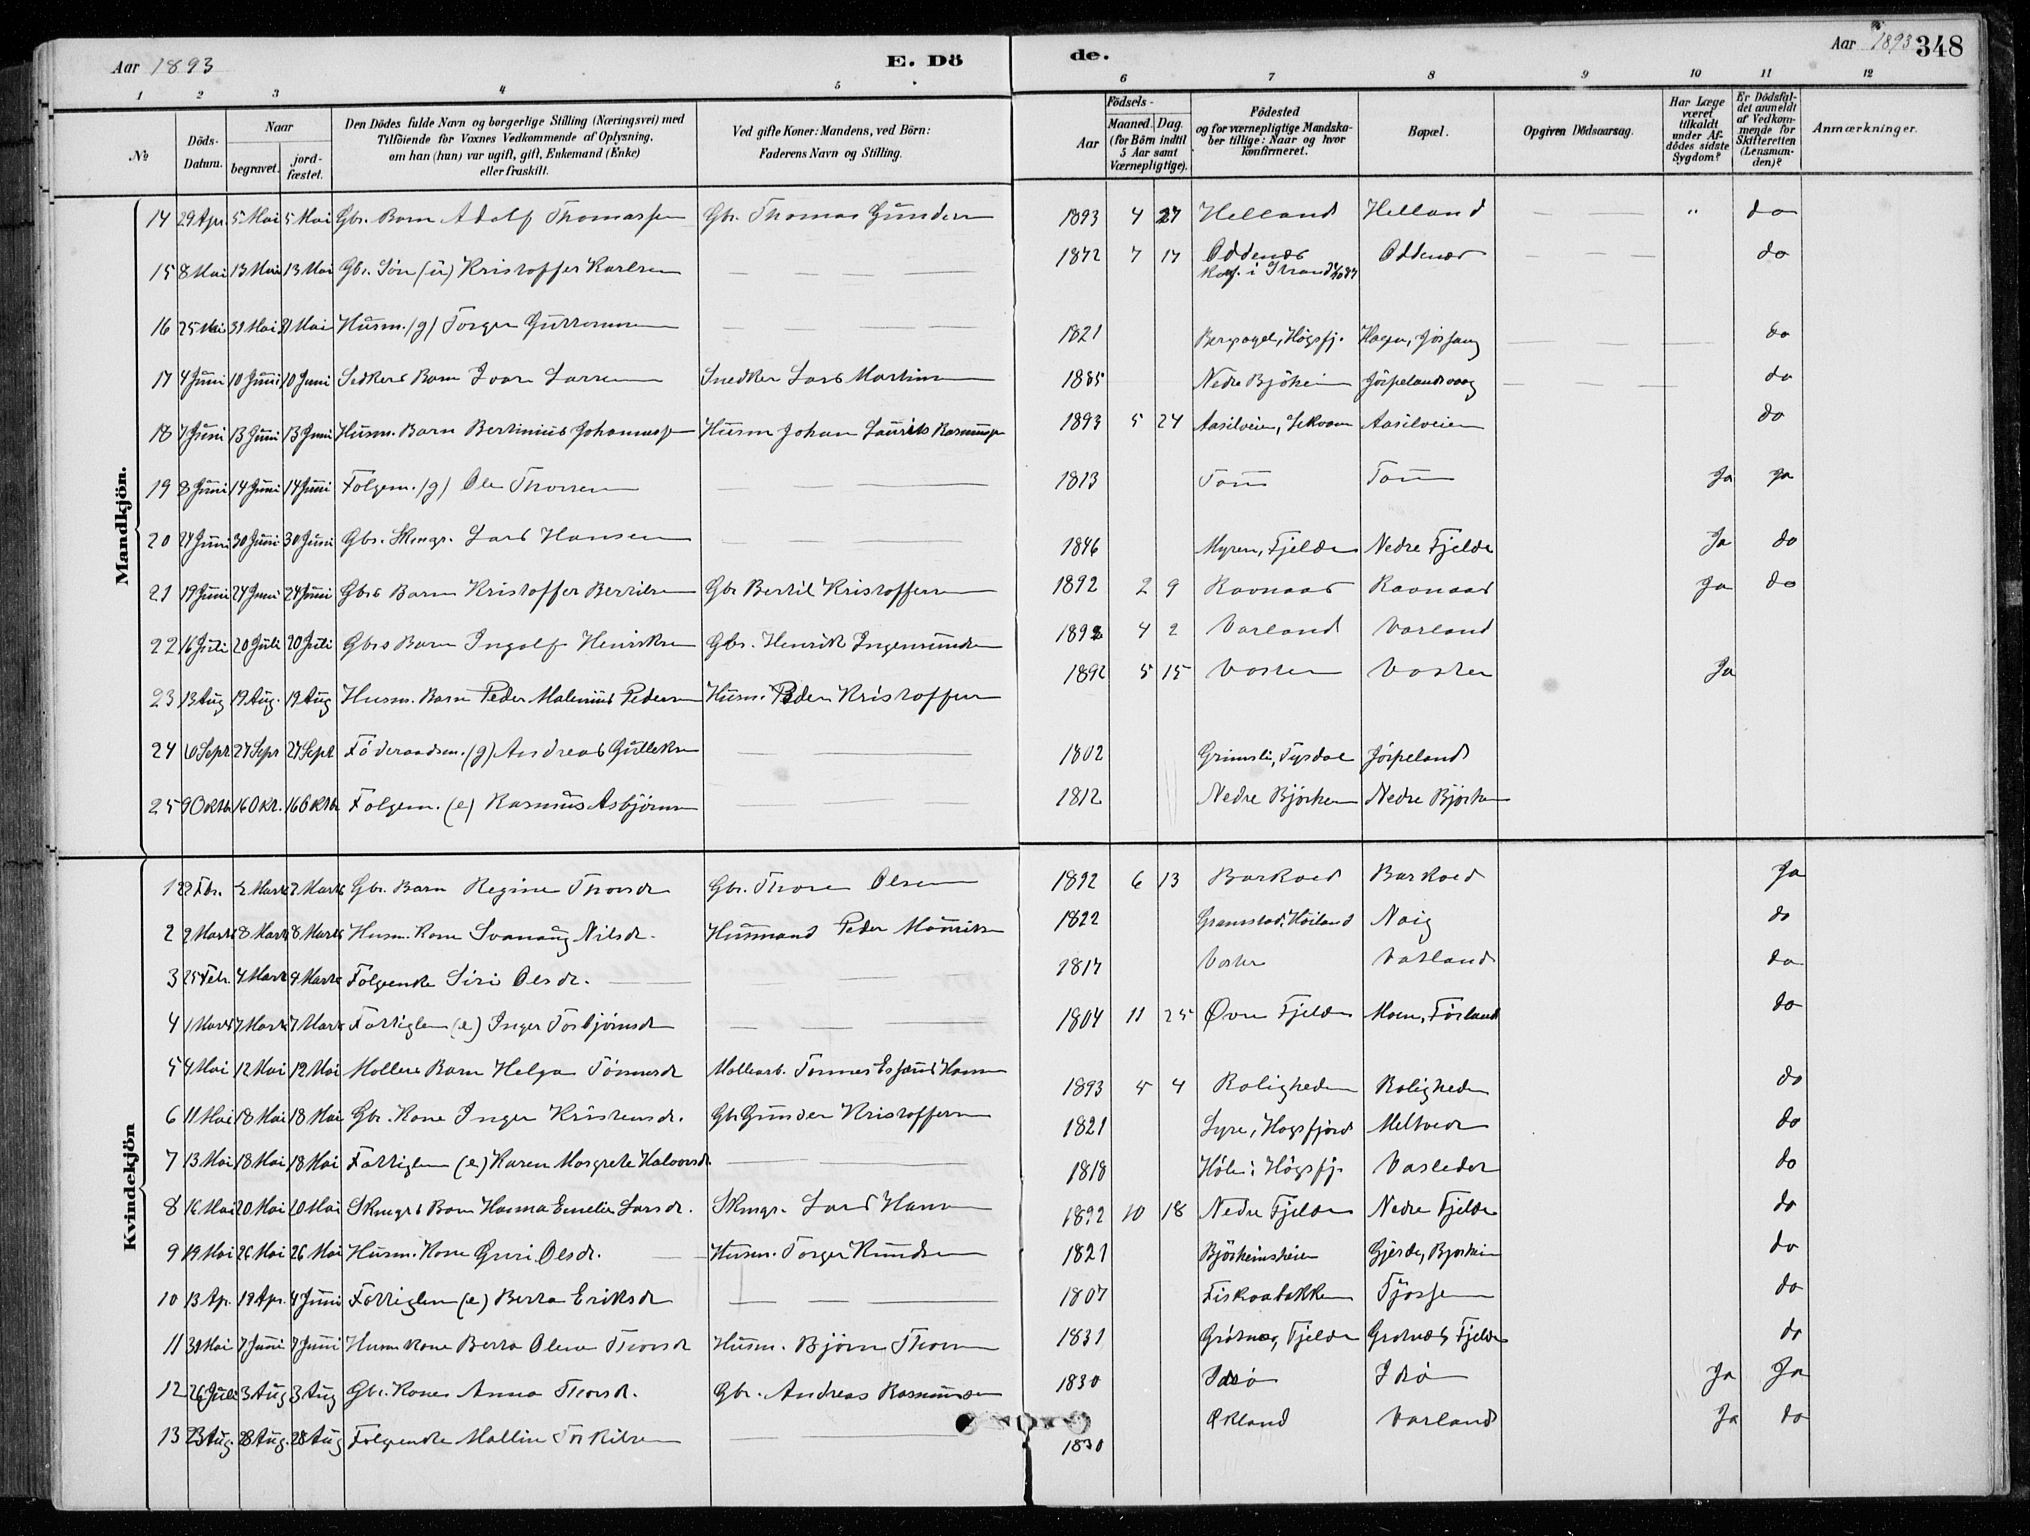 Aar 1893
E. Dö
de.
Aar 1893
348
1 2 3 4 5 6 7 8 9 10 11 12
№
Döds-Datum.
Naar
begravet.
jord-fæstet.
Den Dödes fulde Navn og borgerlige Stilling (Næringsvei) med
Tilföiende for Voxnes Vedkommende af Oplysning,
om han (hun) var ugift, gift, Enkemand (Enke)
eller fraskilt.
Ved gifte Koner: Mandens, ved Börn:
Faderens Navn og Stilling.
Födsels-
Aar
Maaned. Dag.
(for Börn indtil
5 Aar samt
Værnepligtige).
Födested
og for værnepligtige Mandska-
ber tillige: Naar og hvor
konfirmeret.
Bopæl.
Opgiven Dödsaarsag.
Har Læge
været
tilkaldt
under Af-
dödes sidste
Sygdom?
Er Dödsfal-
det anmeldt
af Vedkom-
mende for
Skifteretten
(Lensman-
den)?
Anmærkninger.
Mandkjön.
14 29 Apr. 5 Mai 5 Mai Gbr. Barn Adolf Thomassen Gbr. Thomas Gundersen 1893 4 27 Helland Helland — — — " do
15 8 Mai 13 Mai 13 Mai Gbr. Søn (u) Kristoffer Karlsen — — — 1872 7 17 Oddenæs Oddenæs — — — do
Konf. i Strand
16 25 Mai 31 Mai 31 Mai Husm. (g) Torger Guttormsen — — — 1821 Bergsagel, Högsfj. Hagen, Jössang — — — do
17 4 Juni 10 Juni 10 Juni Snedkers Barn Ivar Larsen Snedker Lars Martinsen 1885 Nedre Björheim Jörpelandsvaag — — — do
18 7 Juni 13 Juni 13 Juni Husm. Barn Bertinius Johannessen Husm Johan Laurits Rasmussen 1893 5 24 Aasilveien, Aasilveien do
19 8 Juni 14 Juni 14 Juni Folgem. (g) Ole Thorsen — — — 1813 Tou Tou Ja Ja
20 24 Juni 30 Juni 30 Juni Gbr. Skmgr. Lars Hansen — — — 1846 Myren, Fjelde Nedre Fjelde Ja do
21 19 Juni 24 Juni 24 Juni Gbrs Barn Kristoffer Bertilsen Gbr Bertil Kristoffersen 1892 2 9 Ravnaas Ravnaas Ja do
22 16 Juli 20 Juli 20 Juli Gbrs Barn Ingolf Henriksen Gbr. Henrik Ingemundsen 1892 4 2 Varland Varland
23 13 Aug 19 Aug. 19 Aug Husm. Barn Peder Malenius Pedersen Husm. Peder Kristoffersen 1892 5 15 Voster Voster Ja
24 6 Sept. 27 Sept 27 Sept Föderaadsm. (g) Andreas Gulleksen — — — 1802 Grimsli, Tysdal Jörpeland
25 9 Oktb. 16 Okt. 16 Oktb. Folgem. (e) Rasmus Asbjörnsen — — — 1812 Nedre Björheim Nedre Björheim
Kvindekjön
1 22 Fbr. 2 Marts 2 Marts Gbr. Barn Regine Thorsdr Gbr. Thore Olsen 1892 6 13 Barkved Barkved Ja
2 2 Marts 8 Marts 8 Marts Husm. Kone Svanaug Nilsdr. Husmand Peder Mauritsen 1822 Gramstad, Höiland Naig do
3 25 Febr. 4 Marts 4 Marts Folgenke Siri Olsdr. — — — 1817 Voster Vatland do
4 1 Marts 7 Marts 7 Marts Fattiglem (e) Inger Torbjörnsdr — — — 1804 11 25 Övre Fjelde Moen, Förland do
5 4 Mai 12 Mai 12 Mai Mollers Barn Helga Tönnesdr Mollearb. Tönnes Hansen 1893 4 Roligheden Roligheden do
6 11 Mai 18 Mai 18 Mai Gbr. Kone Inger Kristensdr. Gbr Gunder Kristoffersen 1821 Lyre, Högsfjord Meltveit do
7 13 Mai 18 Mai 18 Mai Fattiglem (e) Karen Margrete Halvorsdr. — — — 1818 Höle i Högsfj. do
8 16 Mai 20 Mai 20 Mai Skmgrs Barn Hanna Emelie Larsdr. Skmgr. Lars Hansen 1892 10 18 Nedre Fjelde Nedre Fjelde do
9 19 Mai 26 Mai 26 Mai Husm. Kone Guri Olsdr. Husm. Torger Knudsen 1821 Björheimsheien Gjerde, Bjorheim do
10 13 Ap. 19 Apr. 4 Juni Fattiglem (e) Berta Eriksdr — — — 1807 Fiskaabakken Tjössem do
11 31 Mai 7 Juni 7 Juni Husm Kone Berta Olene Thorsdr Husm. Björn Thorsen 1831 Grötnes, Fjelde Grotnæs, Fjelde do
12 26 Juli 3 Aug 3 Aug Gbr. Kone Anna Thorsdr. Gbr. Andreas Rasmussen 1830 Idsö Idsö Ja Ja
13 23 Aug. 28 Aug. 28 Aug Folgenke Mallin Torkilsen — — — 1830 Økland Varland Ja do